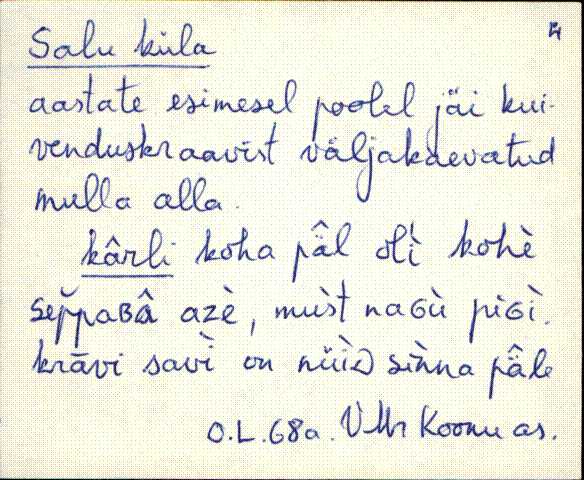 4
Salu küla
aastate esimesel poolel jäi kui-
venduskraavist väljakaevatud
mulla alla.
kârli koha pä̂l olì kohè
sep̆paʙâ azè, mùst naɢù piɢì.
krāvi savì on nüìᴅ sìnna pä̂le
O.L. 68a. VMr Koonu as.